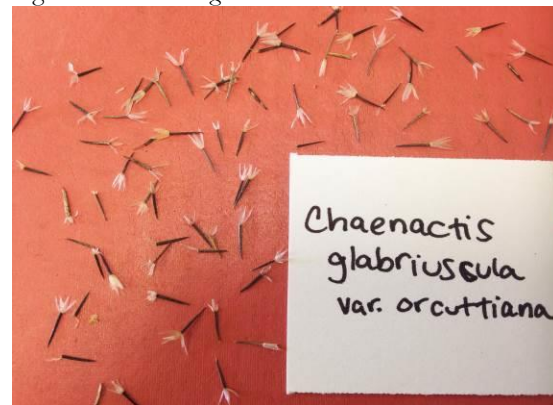 Chaenactis
glabriuscula
var. orcuttiana